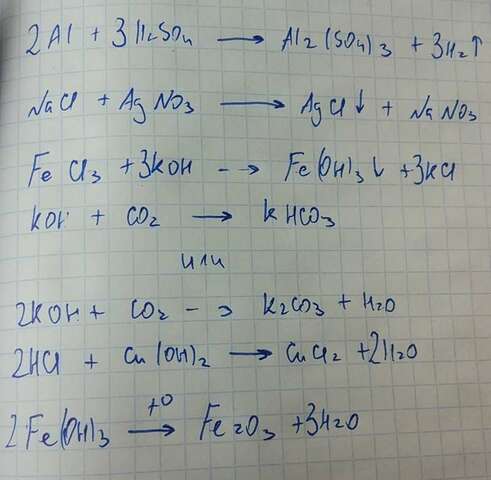 2Al + 3H₂SO₄ → Al₂(SO₄)₃ + 3H₂↑
NaCl + AgNO₃ → AgCl↓ + NaNO₃
FeCl₃ + 3KOH → Fe(OH)₃↓ + 3KCl
KOH + CO₂ → KHCO₃
или
2KOH + CO₂ → K₂CO₃ + H₂O
2HCl + Cu(OH)₂ → CuCl₂ + 2H₂O
2Fe(OH)₃ →(t°) Fe₂O₃ + 3H₂O